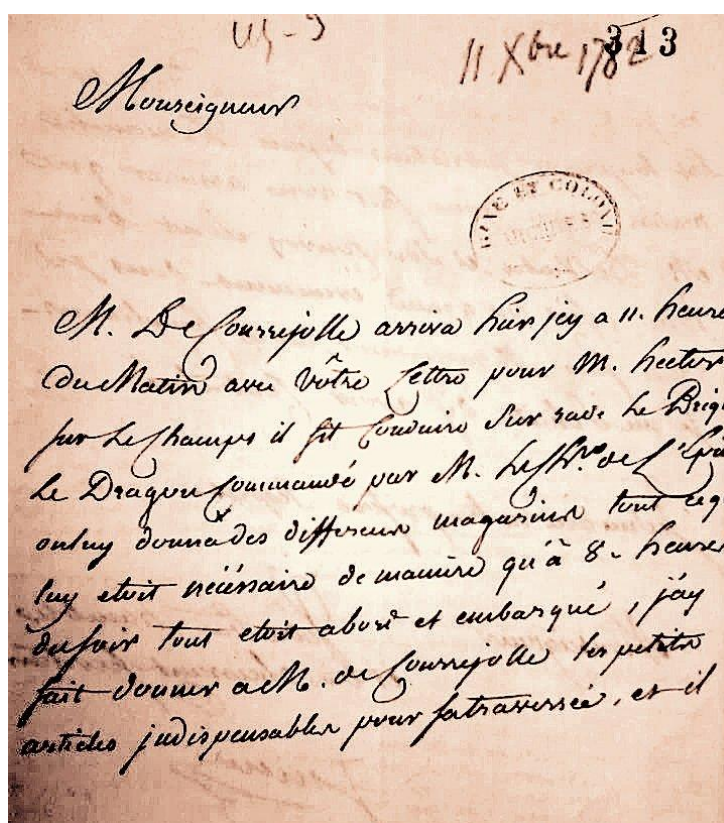 313
11 Xbre 1782
Monseigneur
M. De Courrejolle arriva hier jcy a 11. heure
Du Matin avec vôtre Lettre pour M. hector
sur Le Champs il fit Conduire Sur rade Le Brig
Le Dragon Commandé par M. Le Ch.er de L'Ep
onluy donna des differens magasins tout ceq
luy etoit nécéssaire de maniere qu'à 8. heures
dusoir tout etoit abord et embarqué, j'ay
fait donner a M. de Courrejolle les petits
articles jndispensables pour satraversée, et il